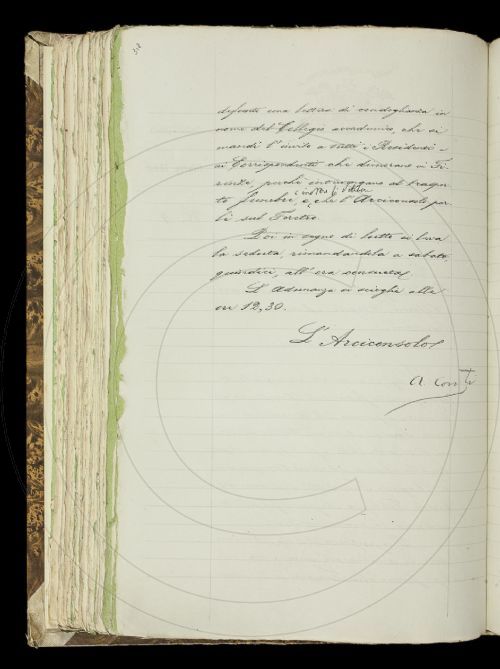 318
defunto una lettera di condoglianza in
nome del Collegio accademico, che si
mandi l'invito a tutti i Residenti e
ai Corrispondenti che dimorano in Fi-
renze, perchè intervengano al traspor-
to funebre, e che l'Arciconsolo par-
li sul Feretro.
Poi in segno di lutto si leva
la seduta, rimandandola a sabato
quindici, all'ora consueta.
L'Adunanza si scioglie alle
ore 12,30.
L'Arciconsolo
A. Conti